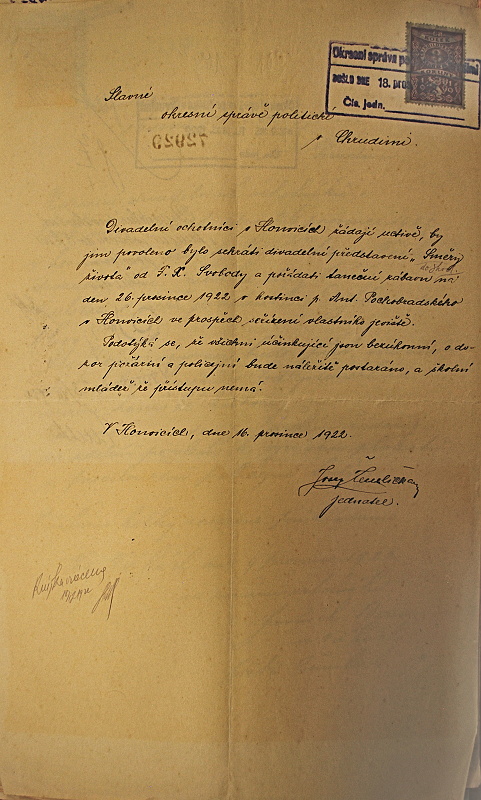 Okresní správa po
DOŠLO DNE 18. pros
Čís. jedn.
Slavné
okresní správě politické
v Chrudimi.
Divadelní ochotníci v Honvicích žádají uctivě, by
jim povoleno bylo sehráti divadelní představení „Směry
života" od F. X. Svobody a pořádati taneční zábavu na
den 26. prosince 1922 v hostinci p. Ant. Pochobradského
v Honvicích ve prospěch seřízení vlastního jeviště.
Podotýká se, že všichni účinkující jsou bezúhonní, o do-
zor požární a policejní bude náležitě postaráno, a školní
mládež že přístupu nemá.
V Honvicích, dne 16. prosince 1922.
Josef
jednatel.